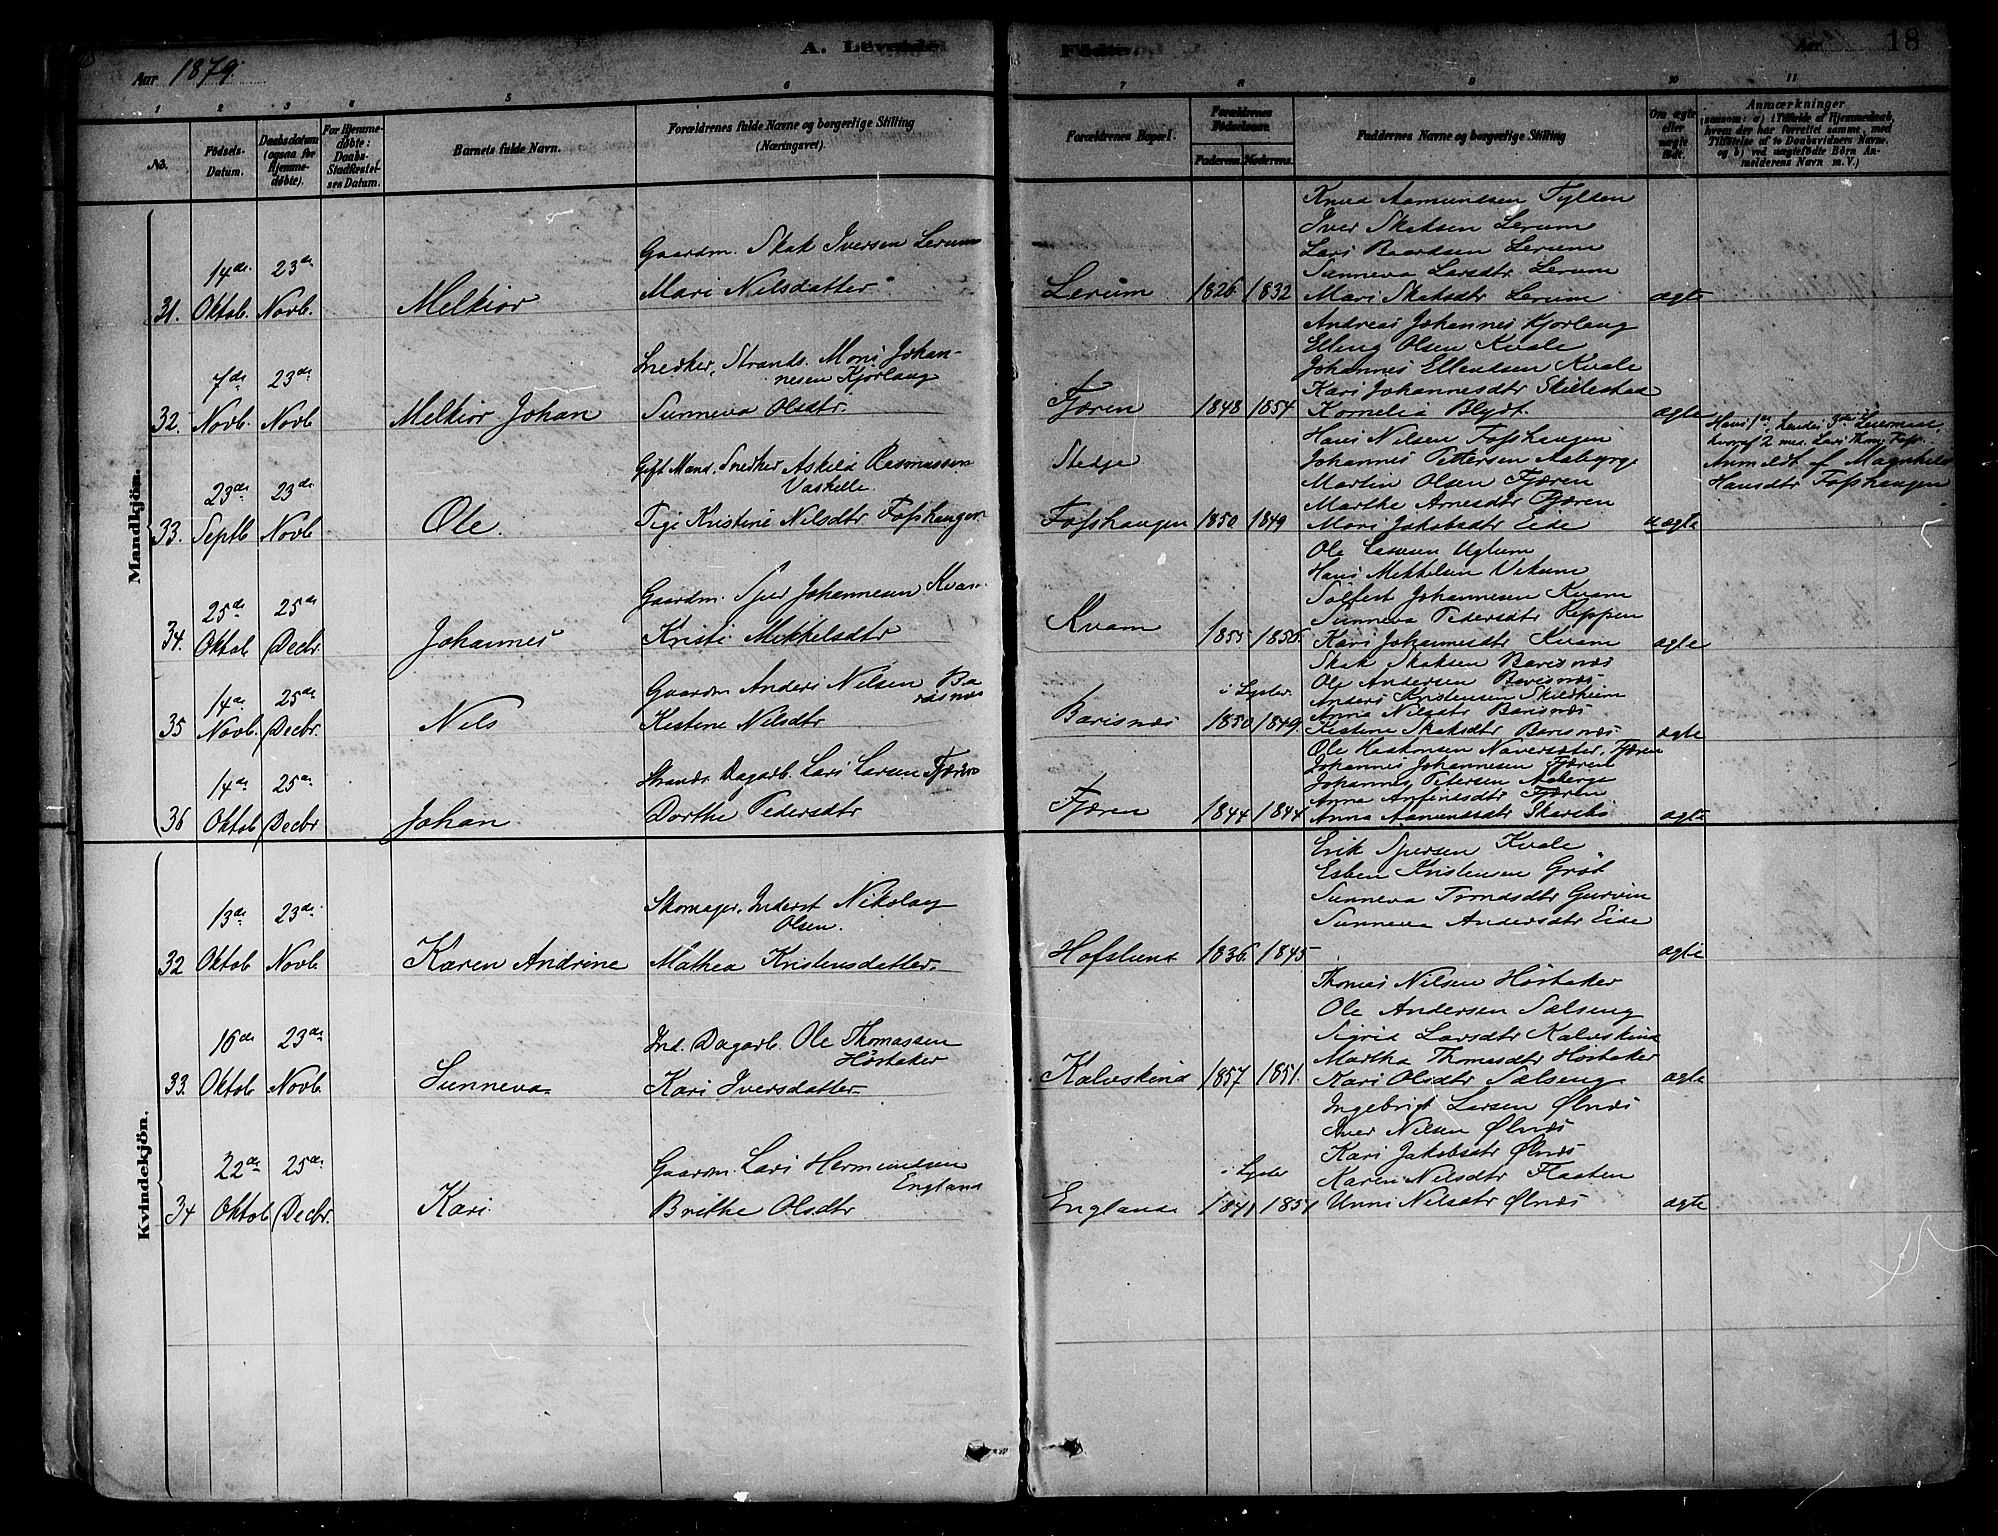 A. Levende Fødte.
Aar 1879.
Aar 18
1 2 3 4 5 6 7 8 9 10 11
No.
Födsels-Datum.
Daabsdatum (ogsaa for Hjemmedöbte).
For Hjemmedöbte: Daabs-Stadfæstelses Datum.
Barnets fulde Navn.
Forældrenes fulde Navne og borgerlige Stilling (Næringsvei).
Forældrenes Bopæl.
Forældrenes Födselsaar.
Faderens. Moderens.
Faddernes Navne og borgerlige Stilling
Om ægte eller uægte födt.
Anmærkninger
saasom: a) i Tilfælde af Hjemmedaab, hvem der har forrettet samme, med Tilföielse af to Daabsvidners Navne, og b) ved uægtefödte Börn Anmelderens Navn m. V.)
Mandkjön.
31. 14de Oktob. 23de Novb. Melkior
Gaardm. Skak Iversen Lerum
Mari Nilsdatter
Lerum 1826 1832
Knud Aamundsen Fylden
Iver Skaksen Lerum
Lars Baardsen Lerum
Sunneva Larsdtr Lerum
Mari Skaksdtr Lerum
ægte
32. 7de Novb. 23de Novb Melkior Johan
Snedker, Strands. Mons Johannesen Kjorlaug
Sunneva Olsdtr.
Fjæren 1848 1854
Andreas Johannes Kjorlaug
Elling Olsen Kvale
Johannes Ellendsen Kvale
Kari Johannesdtr Skillestad
Kornelia Blydt.
ægte
33. 23de Septb 23de Novb Ole.
Gift Mand. Snedker Askild Rasmussen
Kristine Nilsdtr Fosshaugen
Stedje
Fosshaugen 1850 1849
Hans Nilsen Fosshaugen
Johannes Pettersen Aaberge
Martin Olsen Fjæren
Marthe Arnesdtr Fjæren
Mari Jakobsdtr Eide
uægte
Hans 1te, hendes 3die Leiermaal,
hvoraf 2 med Lars Thom. Foss.
Anmeldt af
Hansdtr Fosshaugen
34. 25de Oktob 25de Decbr Johannes
Gaardm. Sjur Johannesen Kvam
Kristi Mikkelsdtr
Kvam 1855 1856.
Ole Larsen Uglum
Hans Mikkelsen Vikum
Solfest Johannesen Kvam
Sunneva Pedersdtr Reppen
Kari Johannesdtr Kvam
ægte
35 14de Novb. 25de Decbr. Nils
Gaardm Anders Nilsen Barsnæs
Kestine Nilsdtr
Barsnæs i Lyster 1850 1849.
Skak Skaksen Barsnæs
Ole Andersen Barsnæs
Anders Kristensen Skildheim
Anna Nilsdtr Barsnæs
Kestine Skaksdtr Barsnæs
ægte
36 14de Oktob 25de Decbr Johan
Strands. Dagarb. Lars Larsen Fjæren
Dorthe Pedersdtr
Fjæren 1844 1844
Ole Haakonsen Navarsæter, Fjæren
Johannes Johannesen Fjæren
Johannes Petersen Aaberge
Anna Anfinsdtr Fjæren
Anna Aamundsdtr Skarsbø
ægte
Kvindekjön.
32 13de Oktob 23de Novb Karen Andrine
Skomager, Inderst Nikolay Olsen.
Mathea Kristensdatter
Hofslund 1836. 1845
Erik Sjursen Kvale
Esben Kristensen Grøt
Sunneva Trondsdtr Gurvin
Sunneva Andersdtr Eide
ægte
33. 16de Oktob 23de Novb. Sunneva
Ind. Dagarb. Ole Thomassen Høstaker
Kari Iversdatter
Kalvskind 1857 1851.
Thomas Nilsen Høstaker
Ole Andersen Sælseng
Sigrid Larsdtr Kalvskind
Martha Thomasdtr Høstaker
Kari Olsdtr Sælseng
ægte
34 22de Oktob 25de Decbr. Kari
Gaardm. Lars Hermundsen England
Brithe Olsdtr
England i Lyster 1841 1851
Ingebrigt Larsen Ølnæs
Iver Nilsen Ølnæs
Kari Jakobsdtr Ølnæs
Karen Nilsdtr Flaaten
Unni Nilsdtr Ølnæs
ægte